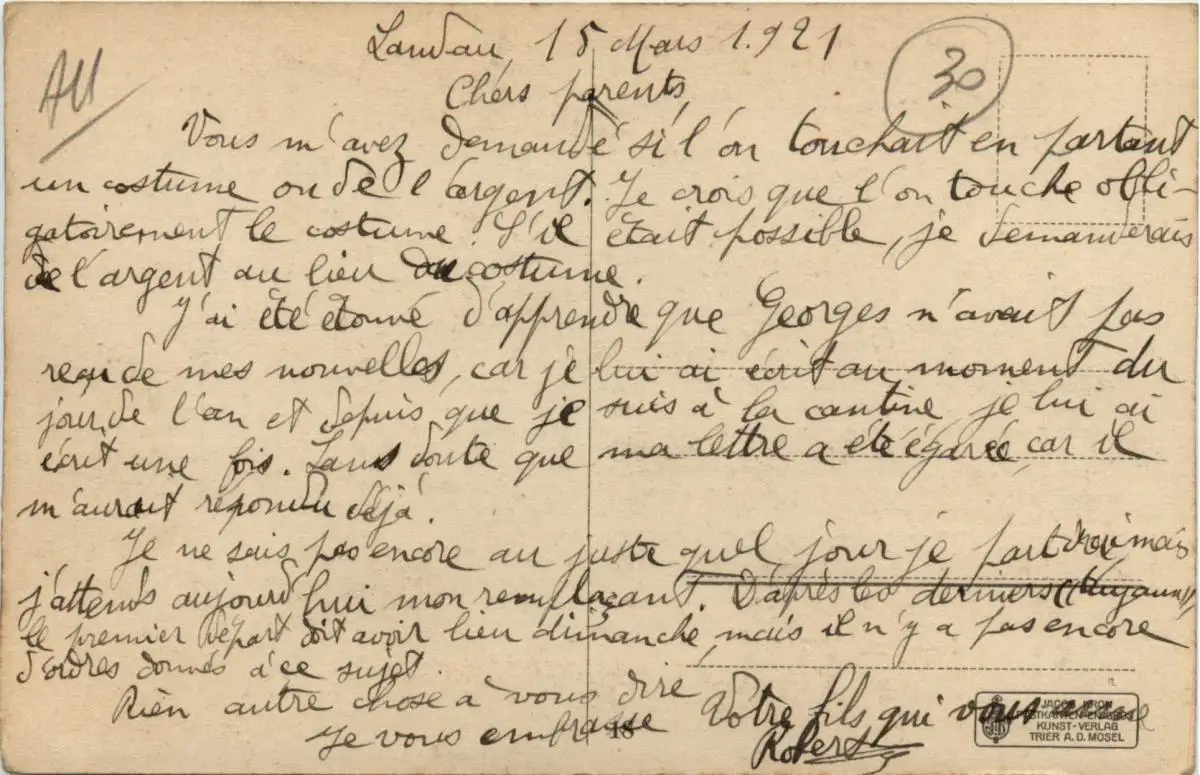 Landau, 15 Mars 1.921
AU
30
Chers parents,
Vous m'avez demandé si l'on touchait en partant
un costume ou de l'argent. Je crois que l'on touche obli-
gatoirement le costume. S'il était possible, je demanderais
de l'argent au lieu du costume.
J'ai été étonné d'apprendre que Georges n'avait pas
reçu de mes nouvelles, car je lui ai écrit au moment du
jour de l'an et depuis que je suis à la cantine je lui ai
écrit une fois. Sans doute que ma lettre a été égarée, car il
m'aurait répondu déjà.
Je ne sais pas encore au juste quel jour je partirai mais
j'attends aujourd'hui mon remplaçant. D'après les derniers "tuyaux"
le premier départ doit avoir lieu dimanche, mais il n'y a pas encore
d'ordres donnés à ce sujet.
Rien autre chose à vous dire
Je vous embrasse
Votre fils qui vous aime
Robert
18
JACOB KRON
POSTKARTEN-EN-GROS
KUNST-VERLAG
TRIER A.D. MOSEL